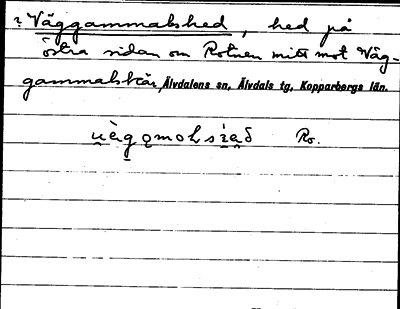 ? Väggammalshed, hed på
östra sidan om Rotnen mitt mot Väg-
gammalskär, Älvdalens sn, Älvdals tg, Kopparbergs län.
Ro.